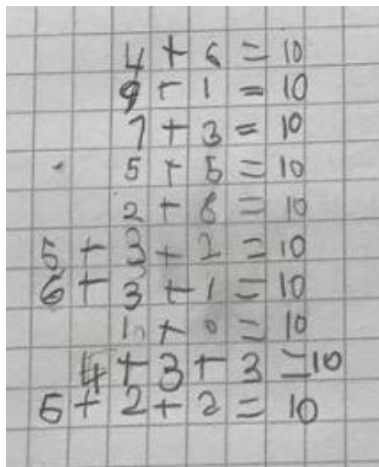 4 + 6 = 10
9 + 1 = 10
7 + 3 = 10
5 + 5 = 10
2 + 8 = 10
5 + 3 + 2 = 10
6 + 3 + 1 = 10
10 + 0 = 10
4 + 3 + 3 = 10
6 + 2 + 2 = 10